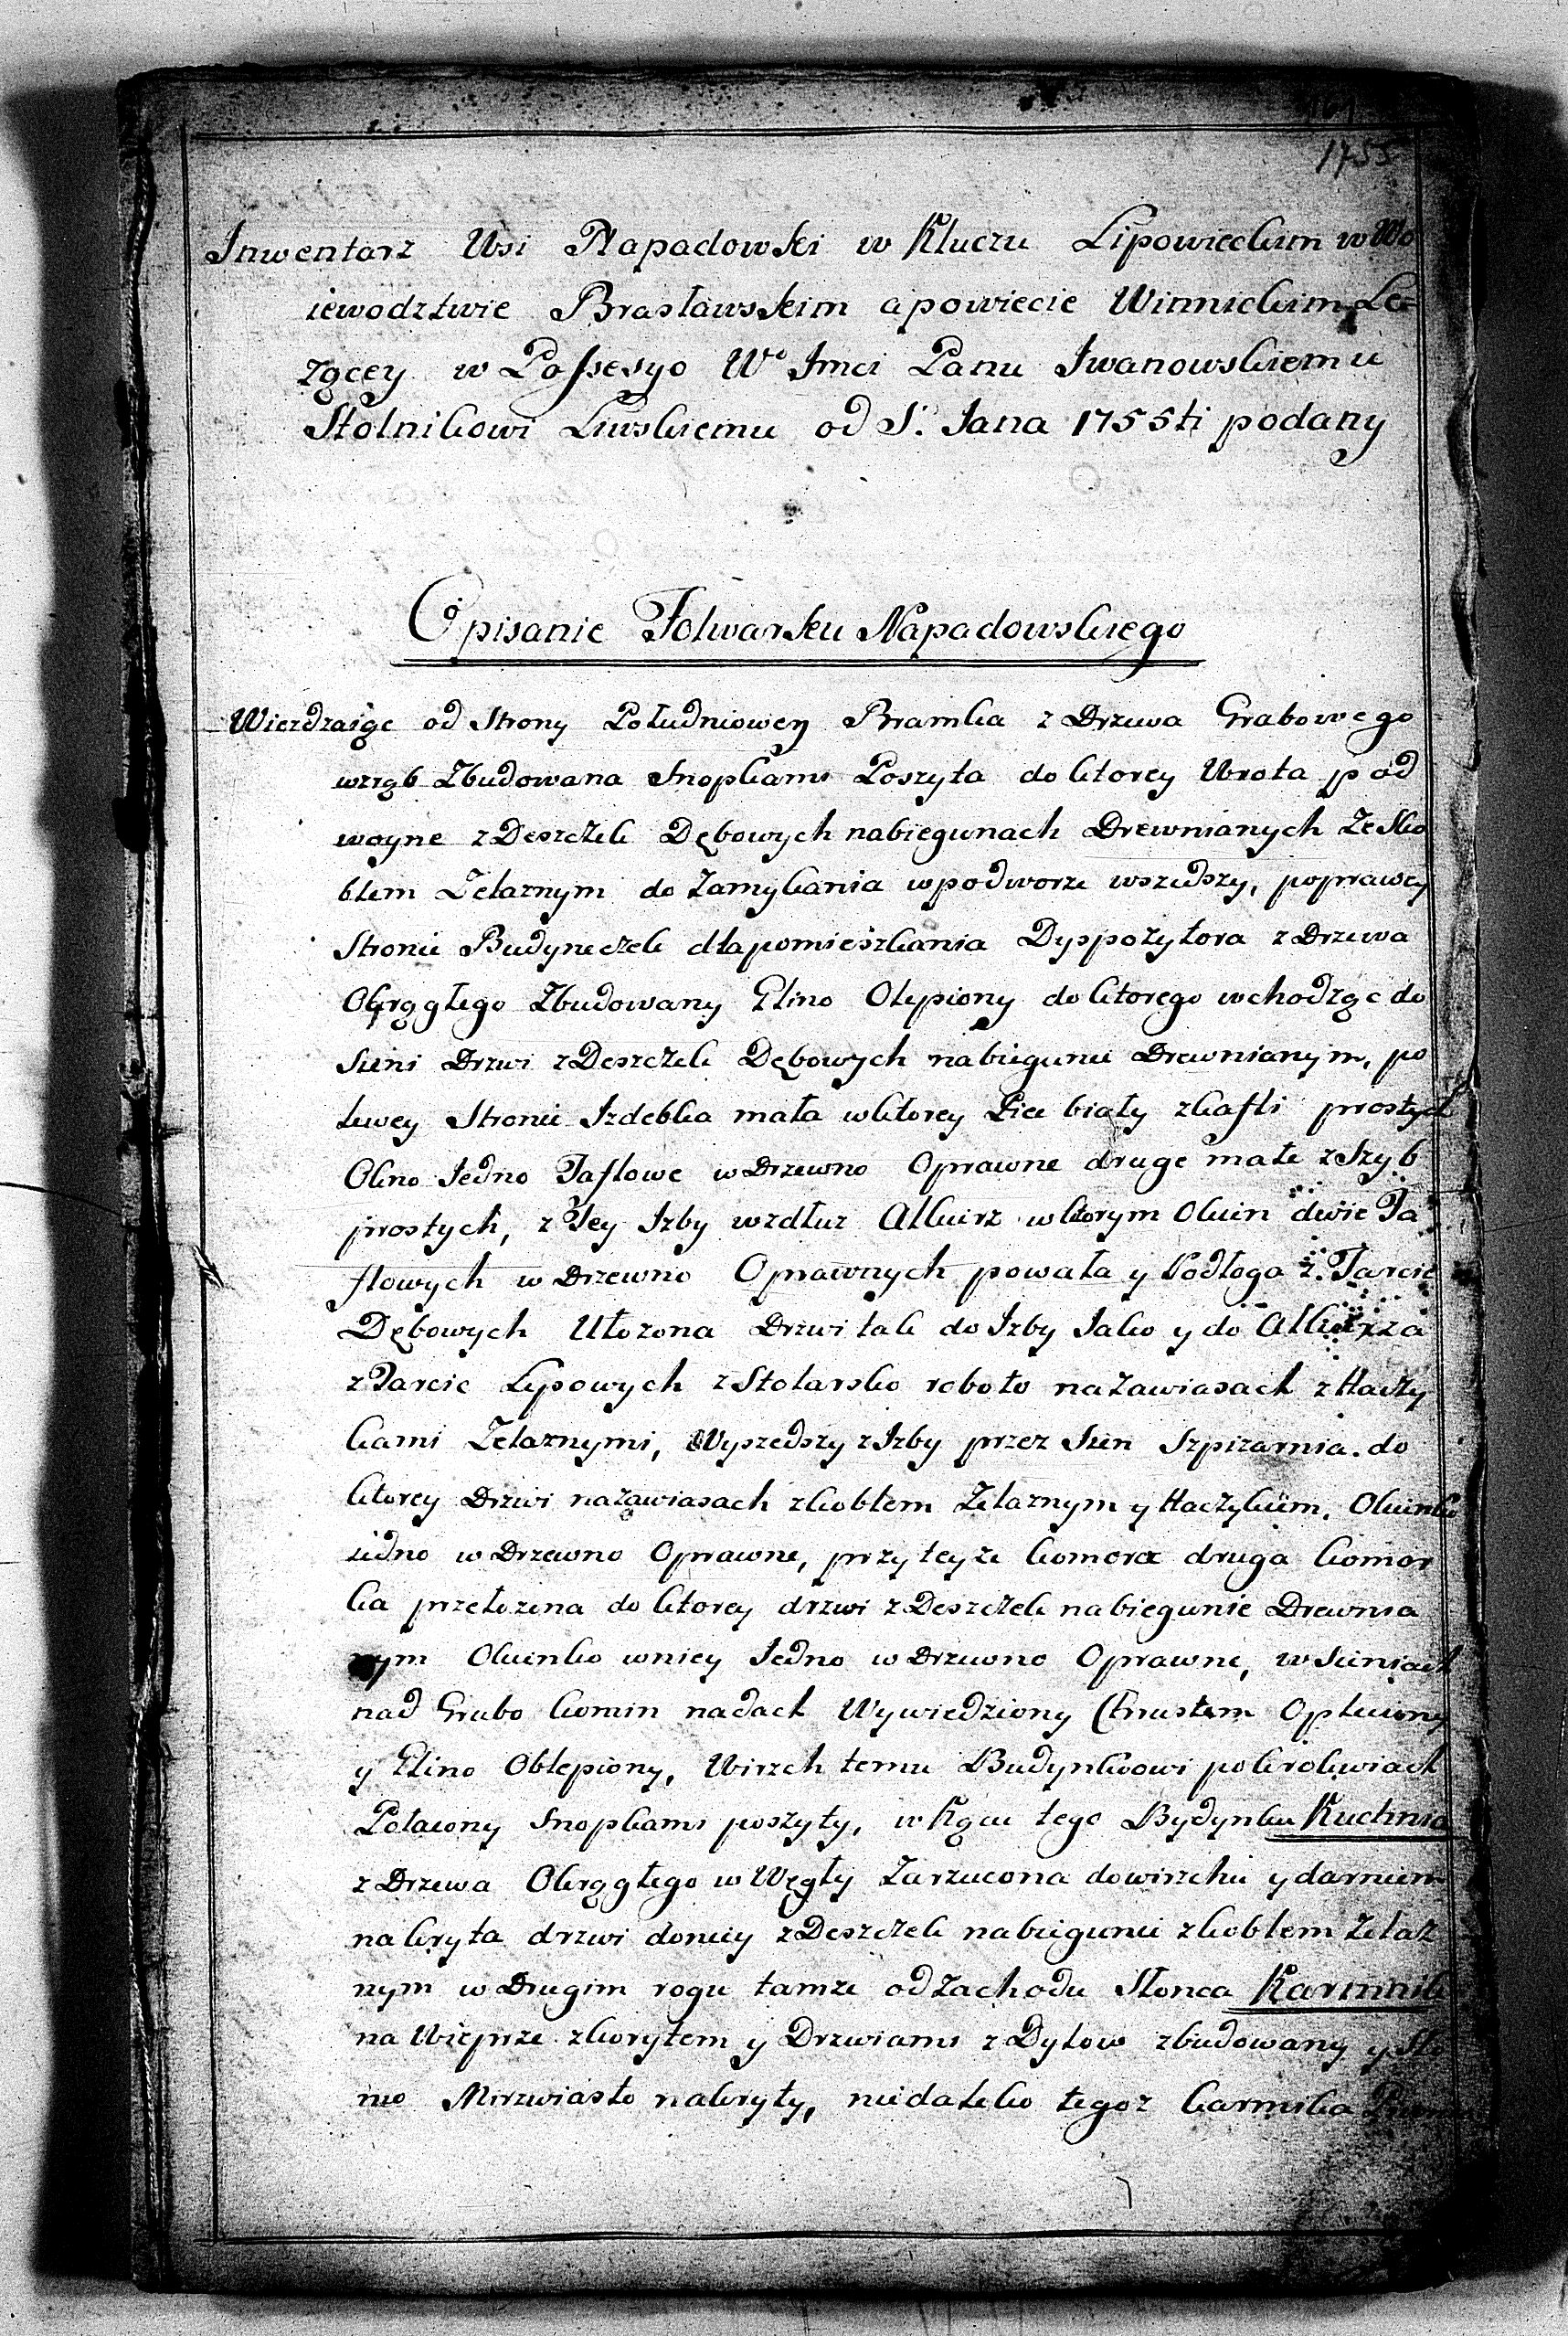 1755
Inwentarz Wsi Napadowki w Kluczu Lipowieckim w Wo
iewodztwie Brasławskim a powiecie Winnickim Le=
zącey w Possesyo W° Jmci Panu Iwanowskiemu
Stolnikowi Liwskiemu od S. Jana 1755ti podany
Opisanie Folwarku Napadowskiego
Wiezdzaiąc od Strony Południowey Bramka z Drzewa Grabowego
wzrąb Zbudowana Snopkami Poszyta do ktorey Wrota pod
woyne z Deszczek Dębowych nabiegunach Drewnianych Ze Sko
blem Zelaznym do Zamykania wpodworze wszedszy, poprawey
Stronie Budyneczek dlapomieszkania Dyspozytora z Drzewa
Okrągłego Zbudowany Glino Olepiony do ktorego wchodząc do
Sieni Drzwi z Deszczek Dębowych nabiegunie Drewnianym, po
lewey Stronie Izdebka mała wktorey Piec biały zkafli prostych
Okno Jedno Taflowe w Drzewno Oprawne druge małe z Szyb
prostych, z Tey Izby wzdłuz Alkierz wktorym Okien dwie Ta
flowych w Drzewno Oprawnych powała y Podłoga z Tarcic
Dębowych Ułozona Drzwi tak do Izby Jako y do Alkierza
z Tarcic Lypowych z Stolarsko roboto nazawiasach z Haczy
kami Zelaznymi, Wyszedszy z Izby przez Sien Szpizarnia. do
ktorey Drzwi nazawiasach zkoblem Zelaznym y Haczykiem, Okienko
iedno w Drzewno Oprawne, przy teyze komorze druga komor
ka przełozona do ktorey drzwi z Deszczek nabiegunie Drewnia
nym Okienko wniey Jedno w Drzewno Oprawne, w Sieniach
nad Grubo komin nadach Wywiedziony Chrustem Opleciony
y Glino Oblepiony, Wierzch temu Budynkowi pokrokwiach
Połacony Snopkami poszyty, w Kącie tego Bydynku Kuchnia
z Drzewa Okrągłego w Węgły Zarzucona dowierzchu y darniem
nakryta drzwi doniey z Deszczek nabiegunie zkoblem Zelaz
nym w Drugim rogu tamze odzachodu Słonca Karmnik
na Wieprze zkorytem y Drzwiami z Dylow zbudowany y Sło
mo Mierzwiasto nakryty, niedaleko tegoz karmika